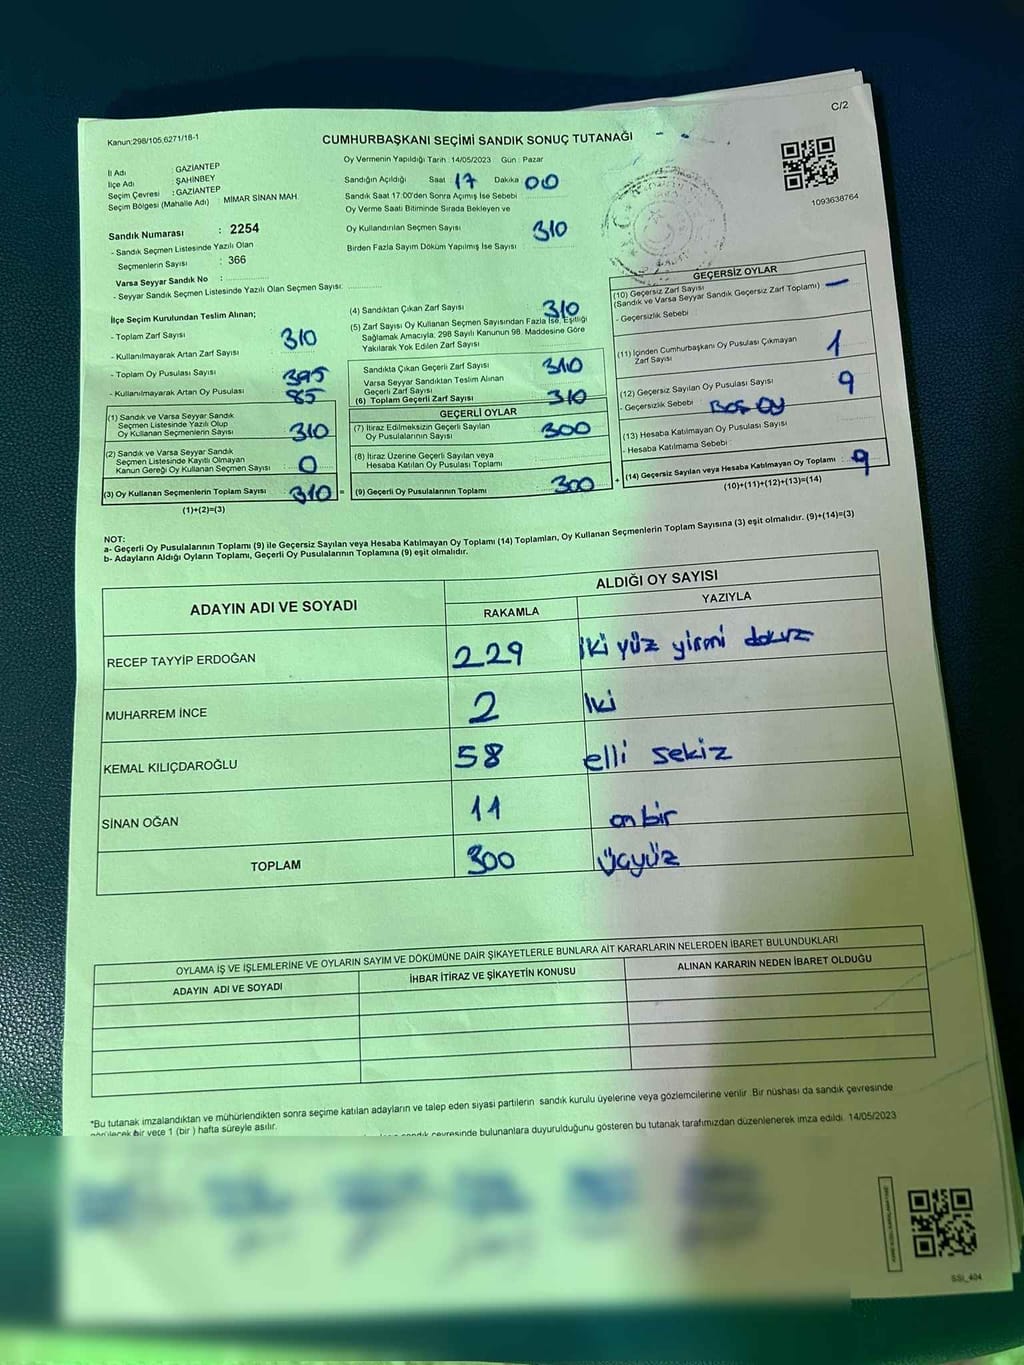 C/2
Kanun:298/105,6271/16-1
CUMHURBAŞKANI SEÇİMİ SANDIK SONUÇ TUTANAĞI
1093638764
İl Adı : GAZİANTEP
İlçe Adı : ŞAHİNBEY
Seçim Çevresi : GAZİANTEP
Seçim Bölgesi (Mahalle Adı) : MİMAR SİNAN MAH
Sandık Numarası : 2254
- Sandık Seçmen Listesinde Yazılı Olan
Seçmenlerin Sayısı : 366
Varsa Seyyar Sandık No :
- Seyyar Sandık Seçmen Listesinde Yazılı Olan Seçmen Sayısı:
Oy Vermenin Yapıldığı Tarih : 14/05/2023 Gün : Pazar
Sandığın Açıldığı Saat 17 Dakika 00
Sandık Saat 17:00'den Sonra Açımış İse Sebebi
Oy Verme Saati Bitiminde Sırada Bekleyen ve
Oy Kullandırılan Seçmen Sayısı 310
Birden Fazla Sayım Döküm Yapılmış İse Sayısı :
İlçe Seçim Kurulundan Teslim Alınan;
- Toplam Zarf Sayısı : 310
- Kullanılmayarak Artan Zarf Sayısı :
- Toplam Oy Pusulası Sayısı : 395
- Kullanılmayarak Artan Oy Pusulası : 85
(1) Sandık ve Varsa Seyyar Sandık
Seçmen Listesinde Yazılı Olup
Oy Kullanan Seçmenlerin Sayısı : 310
(2) Sandık ve Varsa Seyyar Sandık
Seçmen Listesinde Kayıtlı Olmayan
Kanun Gereği Oy Kullanan Seçmen Sayısı : 0
(3) Oy Kullanan Seçmenlerin Toplam Sayısı : 310 =
(1)+(2)=(3)
(4) Sandıktan Çıkan Zarf Sayısı : 310
(5) Zarf Sayısı Oy Kullanan Seçmen Sayısından Fazla İse, Eşitliği
Sağlamak Amacıyla, 298 Sayılı Kanunun 98. Maddesine Göre
Yakılarak Yok Edilen Zarf Sayısı :
Sandıkta Çıkan Geçerli Zarf Sayısı : 310
Varsa Seyyar Sandıktan Teslim Alınan
Geçerli Zarf Sayısı :
(6) Toplam Geçerli Zarf Sayısı : 310
GEÇERLİ OYLAR
(7) İtiraz Edilmeksizin Geçerli Sayılan
Oy Pusulalarının Sayısı : 300
(8) İtiraz Üzerine Geçerli Sayılan veya
Hesaba Katılan Oy Pusulası Toplamı :
(9) Geçerli Oy Pusulalarının Toplamı : 300 +
GEÇERSİZ OYLAR
(10) Geçersiz Zarf Sayısı
(Sandık ve Varsa Seyyar Sandık Geçersiz Zarf Toplamı) : —
- Geçersizlik Sebebi
(11) İçinden Cumhurbaşkanı Oy Pusulası Çıkmayan
Zarf Sayısı : 1
(12) Geçersiz Sayılan Oy Pusulası Sayısı : 9
- Geçersizlik Sebebi : BOŞ OY
(13) Hesaba Katılmayan Oy Pusulası Sayısı :
- Hesaba Katılmama Sebebi :
(14) Geçersiz Sayılan veya Hesaba Katılmayan Oy Toplamı : 9
(10)+(11)+(12)+(13)=(14)
NOT:
a- Geçerli Oy Pusulalarının Toplamı (9) ile Geçersiz Sayılan veya Hesaba Katılmayan Oy Toplamı (14) Toplamları, Oy Kullanan Seçmenlerin Toplam Sayısına (3) eşit olmalıdır. (9)+(14)=(3)
b- Adayların Aldığı Oyların Toplamı, Geçerli Oy Pusulalarının Toplamına (9) eşit olmalıdır.
ADAYIN ADI VE SOYADI ALDIĞI OY SAYISI
RAKAMLA YAZIYLA
RECEP TAYYİP ERDOĞAN 229 iki yüz yirmi dokuz
MUHARREM İNCE 2 iki
KEMAL KILIÇDAROĞLU 58 elli sekiz
SİNAN OĞAN 11 on bir
TOPLAM 300 üçyüz
OYLAMA İŞ VE İŞLEMLERİNE VE OYLARIN SAYIM VE DÖKÜMÜNE DAİR ŞİKAYETLERLE BUNLARA AİT KARARLARIN NELERDEN İBARET BULUNDUKLARI
ADAYIN ADI VE SOYADI İHBAR İTİRAZ VE ŞİKAYETİN KONUSU ALINAN KARARIN NEDEN İBARET OLDUĞU
*Bu tutanak imzalandıktan ve mühürlendikten sonra seçime katılan adayların ve talep eden siyasi partilerin sandık kurulu üyelerine veya gözlemcilerine verilir. Bir nüshası da sandık çevresinde
görülecek bir yere 1 (bir ) hafta süreyle asılır.
sandık çevresinde bulunanlara duyurulduğunu gösteren bu tutanak tarafımızdan düzenlenerek imza edildi. 14/05/2023
SSI_404